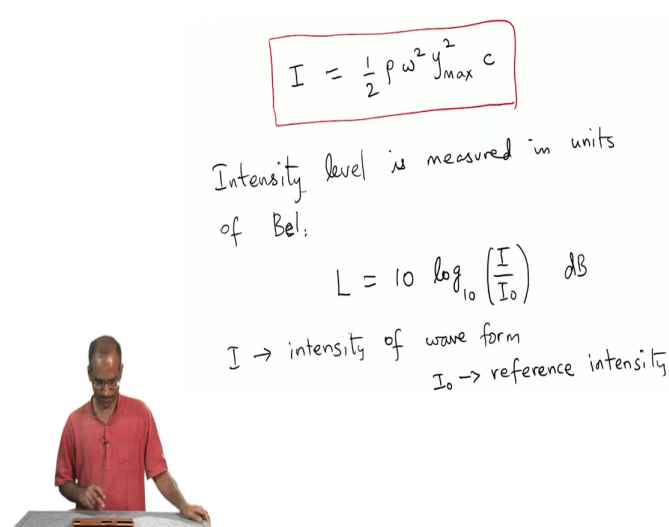 I = 1/2 ρ ω² y²max c
Intensity level is measured in units
of Bel.
L = 10 log₁₀ (I/I₀) dB
I → intensity of wave form
I₀ → reference intensity